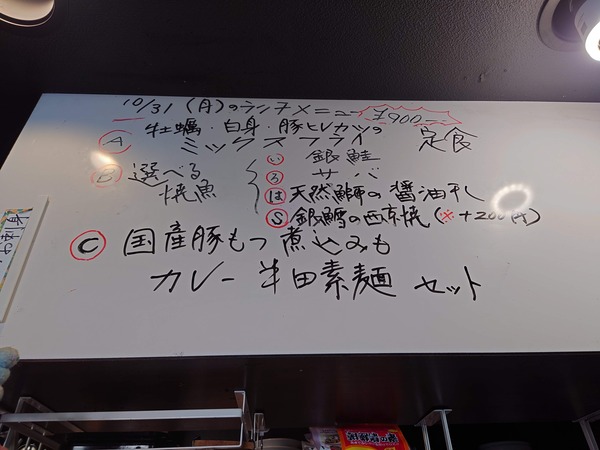 10/31 (月)のランチメニュー ¥900-
Ⓐ 牡蠣・白身・豚ヒレカツの
ミックスフライ 定食
Ⓑ 選べる
焼魚
い 銀鮭
ろ サバ
は 天然鰤の醤油干し
Ⓢ 銀鱈の西京焼(※+200円)
Ⓒ 国産豚もつ煮込みも
カレー半田素麺 セット